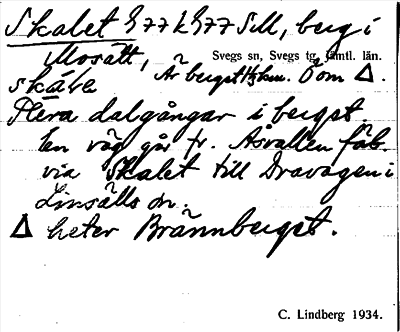 Skalet Ͼ77 k Ͼ77 Sill, berg i
Mosätt, Svegs sn, Svegs tg, Jämtl. län.
skálɐ Är berget ½ km. Ö om Δ.
Flera dalgångar i berget.
En väg går fr. Åsvallen fäb.
via Skalet till Dravagen i
Linsälls sn.
Δ heter Brännberget.
C. Lindberg 1934.